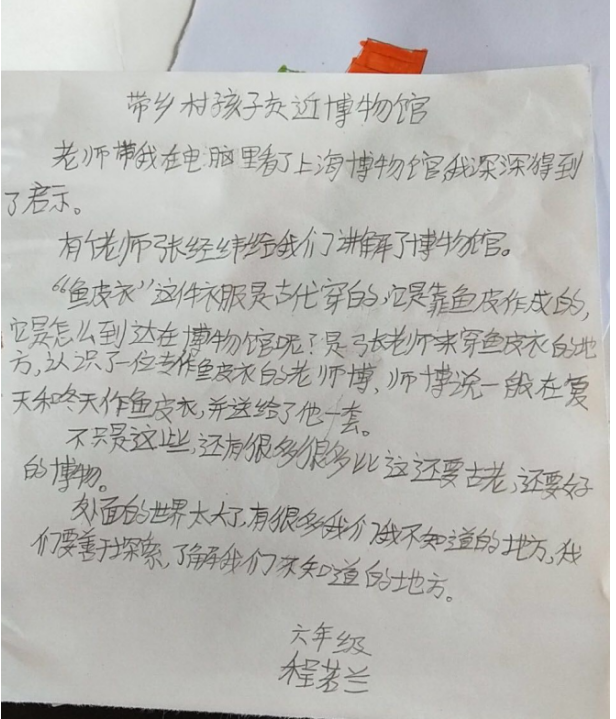 带乡村孩子走近博物馆
老师带我在电脑里看了上海博物馆,我深深得到
了启示。
有位老师张经纬给我们讲解了博物馆。
“鱼皮衣”这件衣服是古代穿的,它是靠鱼皮作成的,
它是怎么到达在博物馆呢?是张老师来穿鱼皮衣的地
方,认识了一位去作鱼皮衣的老师博,师博说一般在夏
天和咚天作鱼皮衣,并送给了他一套。
不只是这些,还有很多很多比这还要古老,还要好
的博物。
外面的世界太大了,有很多我们我不知道的地方,我
们要善于探索,了解我们未知道的地方。
六年级
程若兰